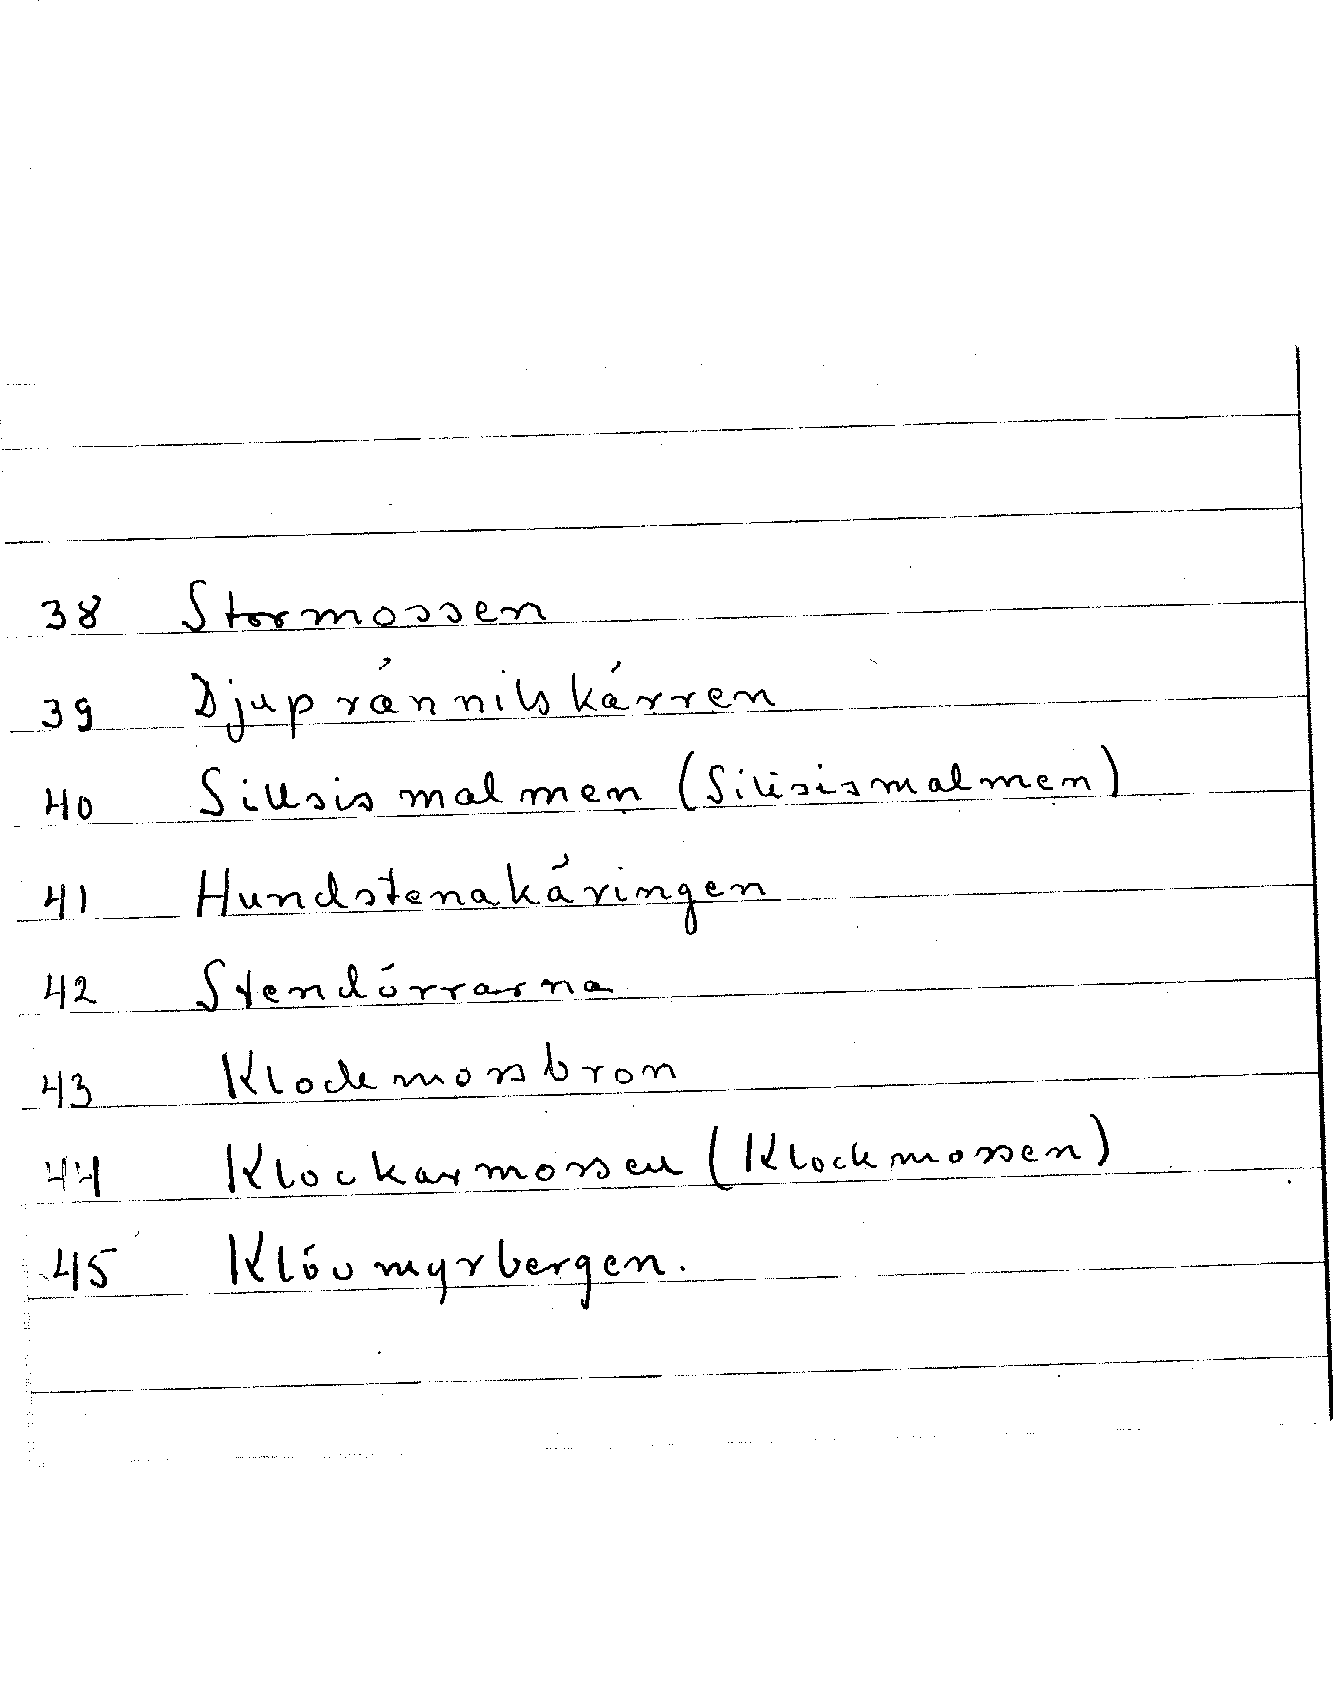 38 Stormossen
39 Djuprännilskärren
40 Sillsismalmen (Sillsismalmen)
41 Hundstenakäringen
42 Stendörrarna
43 Klockmossbron
44 Klockarmossen (Klockmossen)
45 Klövmyrbergen.